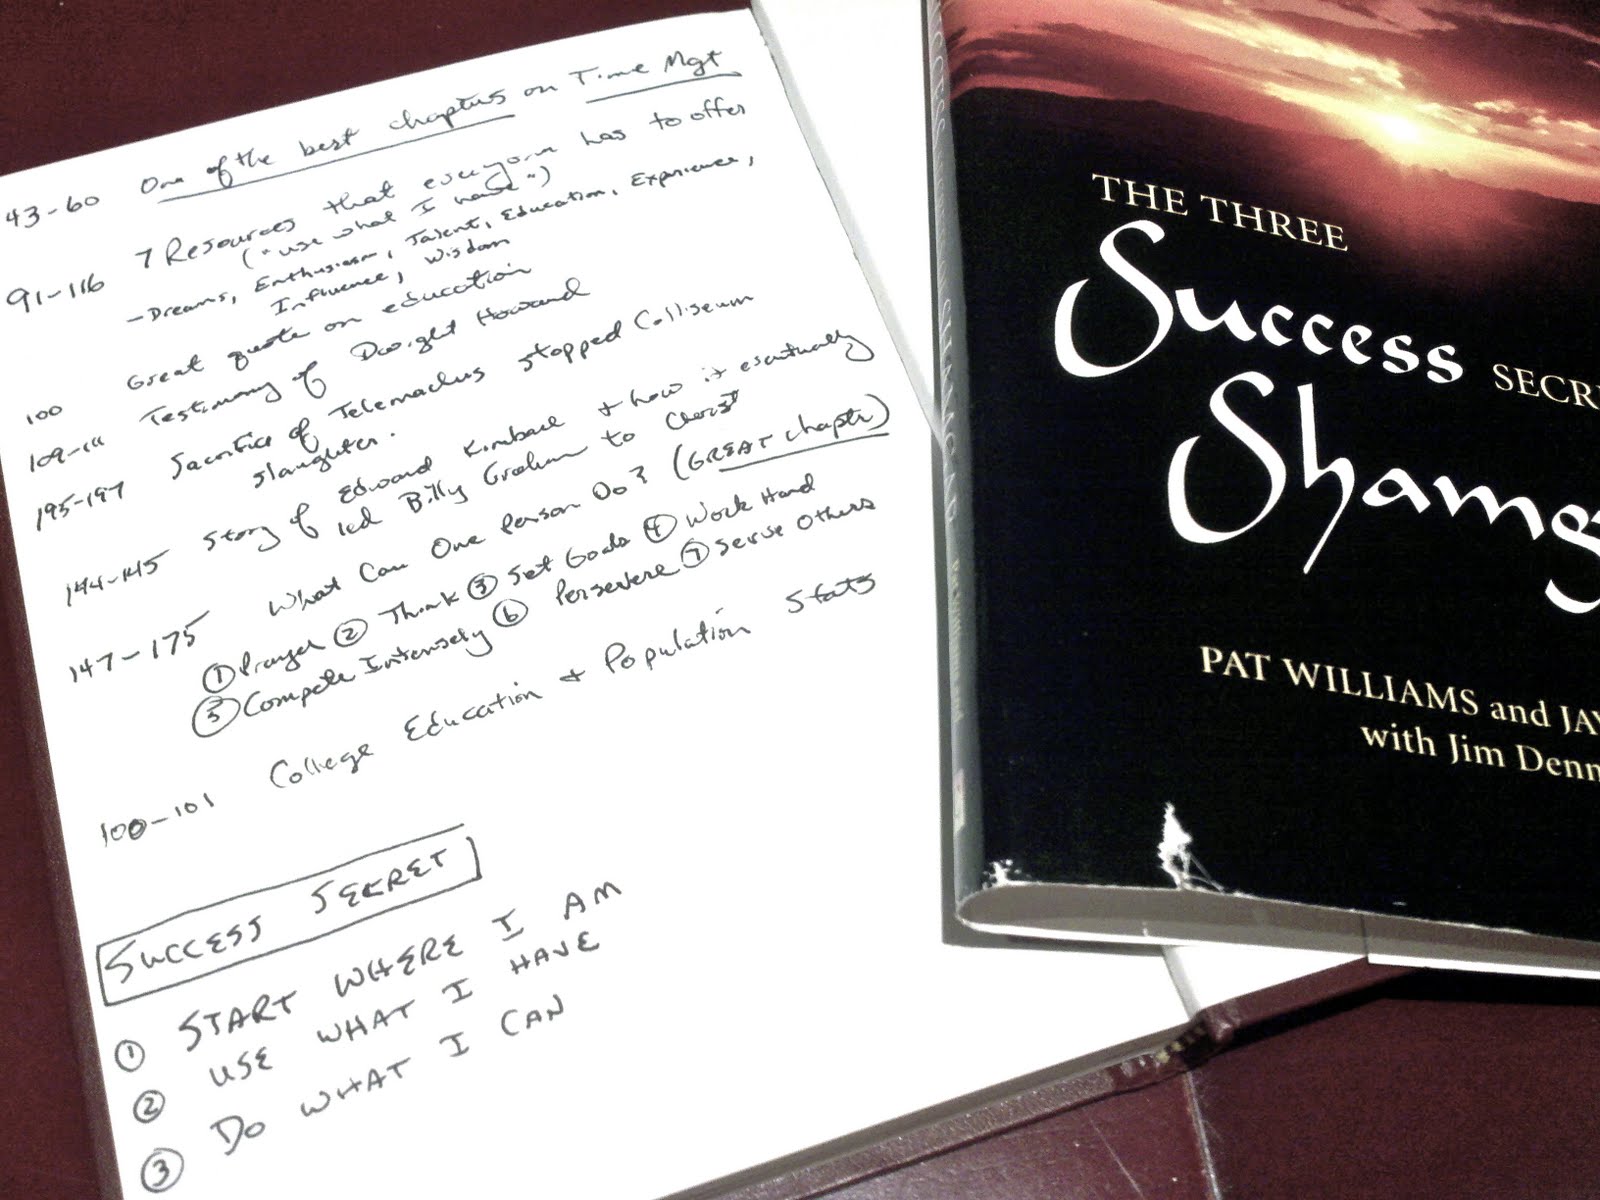 43-60 One of the best chapters on Time Mgt
91-116 7 Resources that everyone has to offer
("use what I have")
- Dreams, Enthusiasm, Talent, Education, Experience,
Influence, Wisdom
100 Great quote on education
109-111 Testimony of Dwight Howard
195-197 Sacrifice of Telemachus stopped Colliseum
slaughter.
144-145 Story of Edward Kimball & how it eventually
led Billy Graham to Christ
147-175 What Can One Person Do? (GREAT chapter)
① Prayer ② Think ③ Set Goals ④ Work Hard
⑤ Compete Intensely ⑥ Persevere ⑦ Serve Others
100-101 College Education & Population Stats
SUCCESS SECRET
① START WHERE I AM
② USE WHAT I HAVE
③ DO WHAT I CAN
THE THREE
Success SECR
Shamg
PAT WILLIAMS and JAY
with Jim Denn